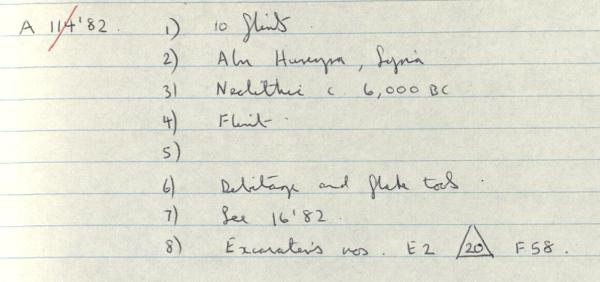 A 114'82. 1) 10 flints.
2) Abu Hureyra, Syria
3) Neolithic c. 6,000 BC
4) Flint.
5)
6) Debitage and flake tools.
7) See 16'82.
8) Excavator's nos. E2 20 F58.